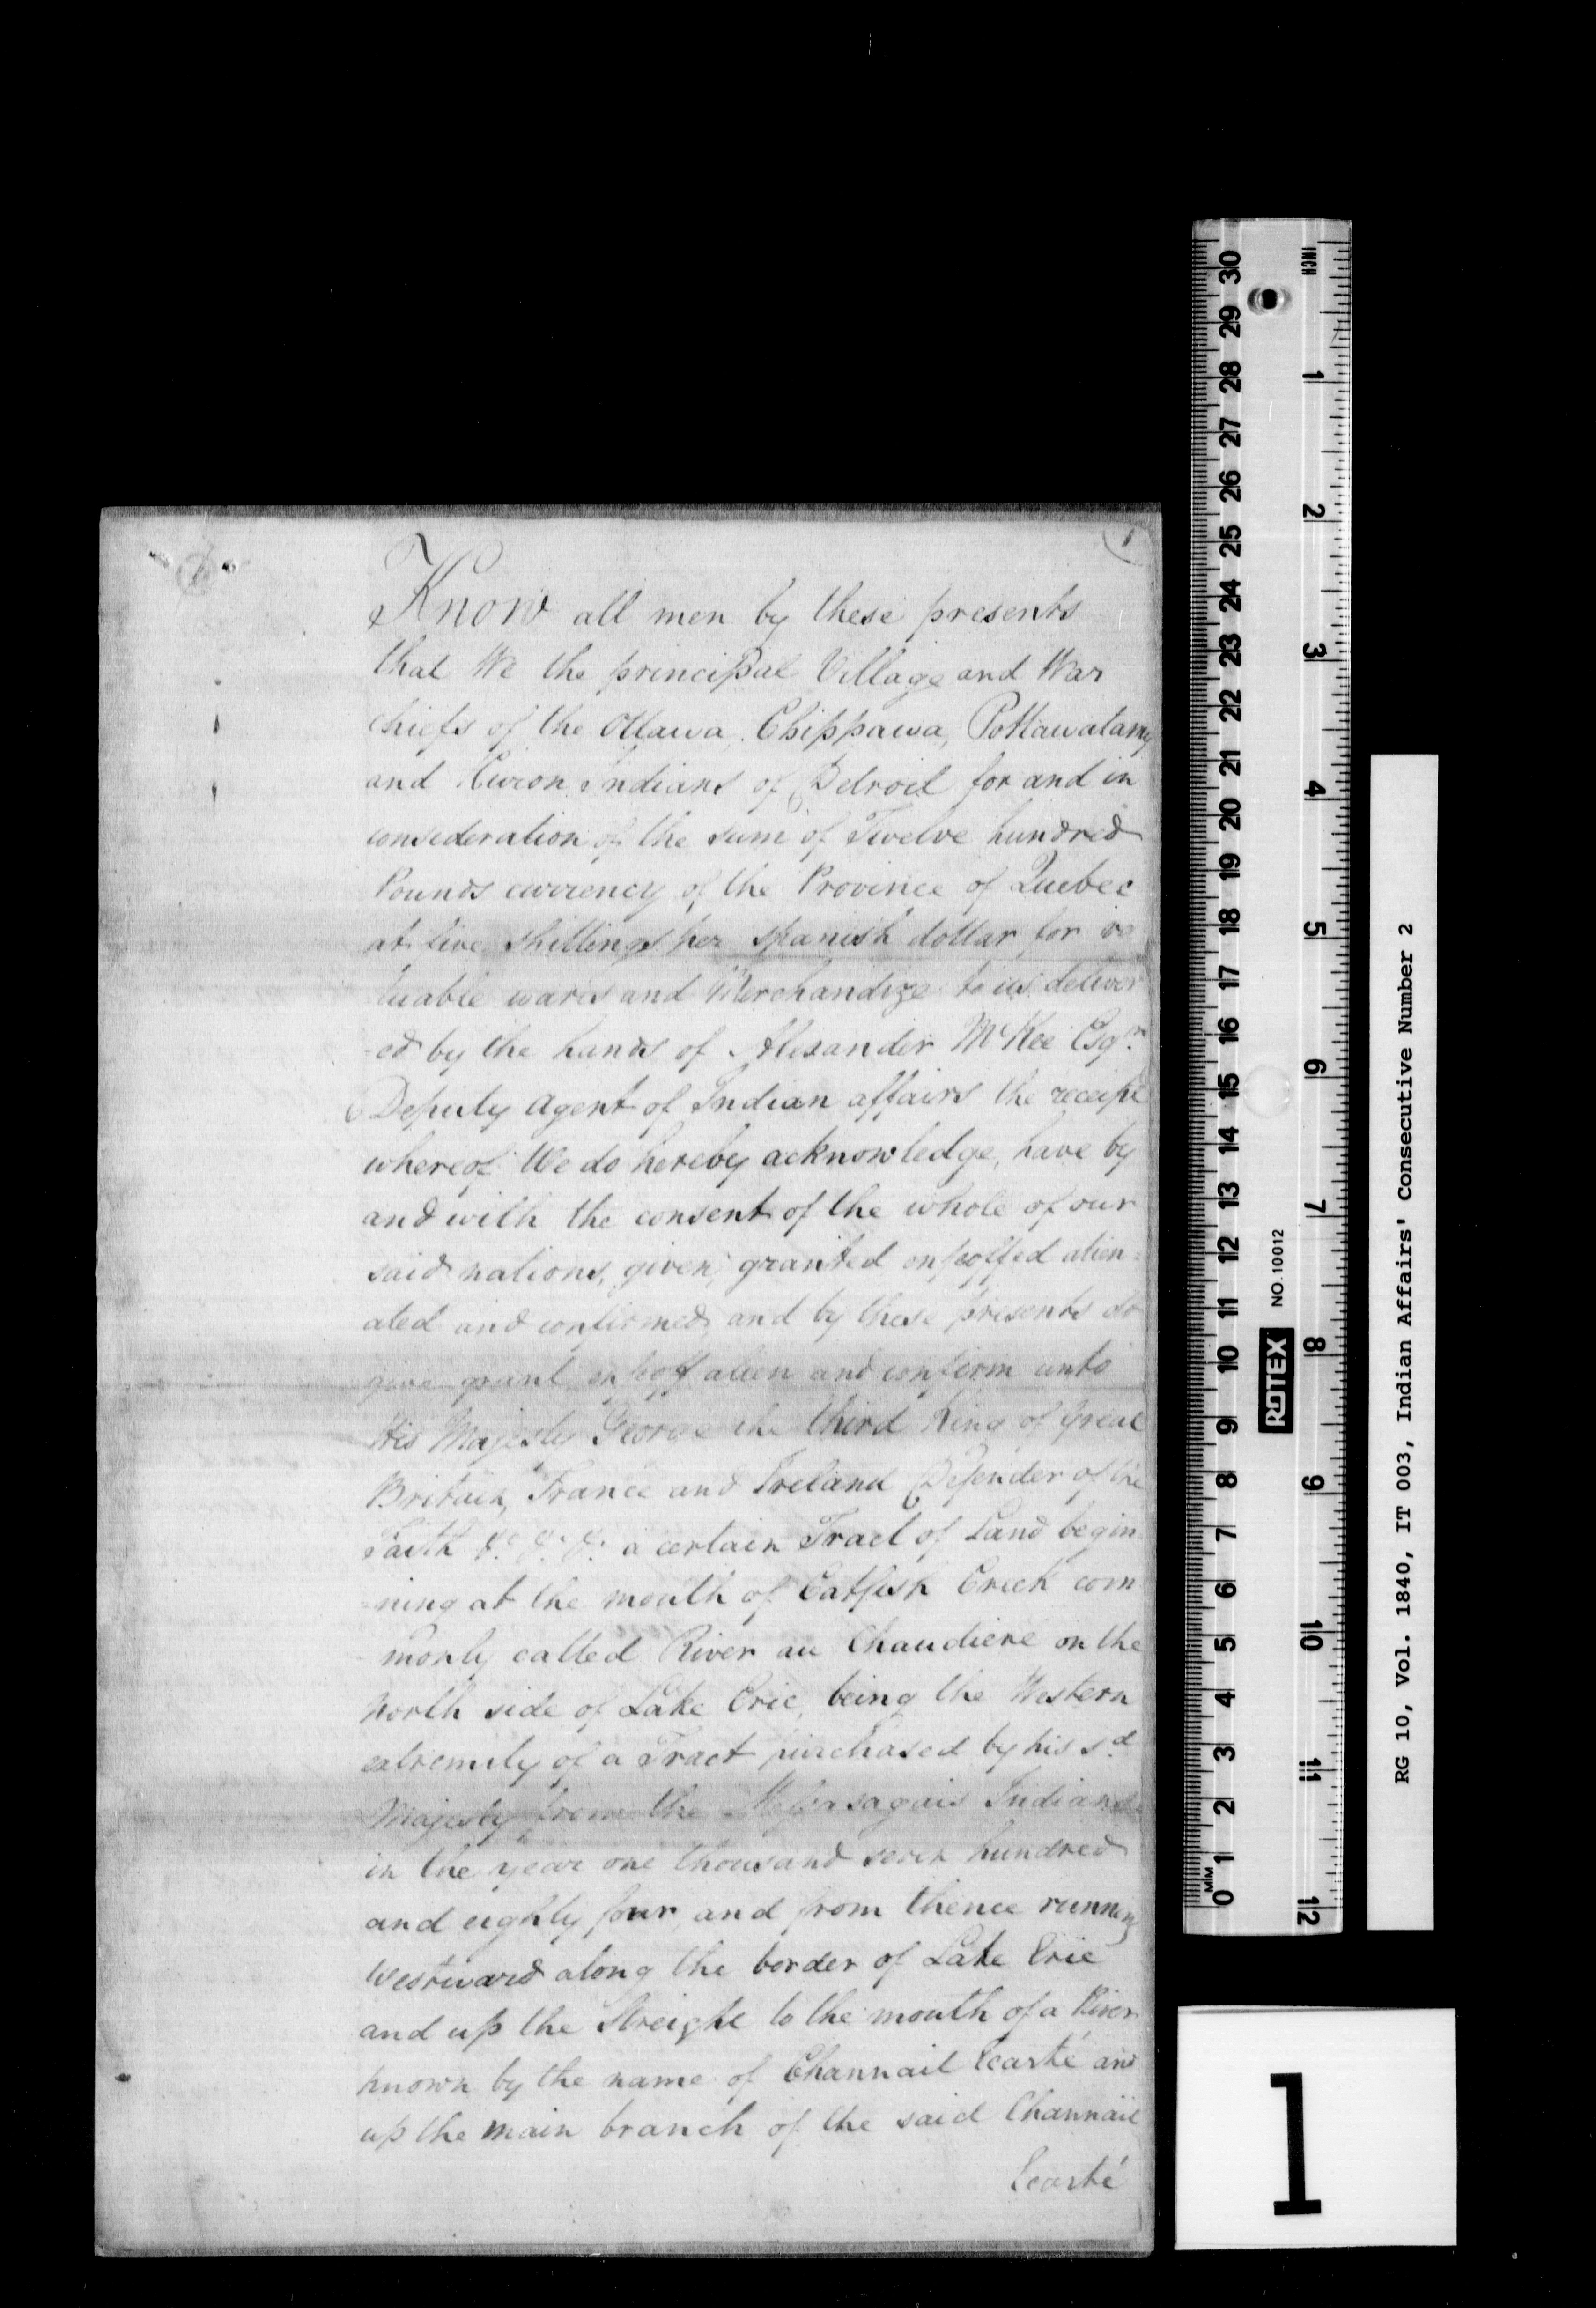 1
Know all men by these presents
that We the principal Village and War
chiefs of the Ottawa, Chippawa, Pottawatamy
and Huron Indians of Detroit for and in
consideration of the sum of Twelve hundred
Pounds currency of the Province of Quebec
at five shillings per spanish dollar for va
luable wares and Merchandize to us deliver
-ed by the hands of Alexander McKee Esqr.
Deputy Agent of Indian affairs the receipt
whereof We do hereby acknowledge, have by
and with the consent of the whole of our
said nations, given, granted enfeoffed alien=
ated and confirmed, and by these presents do
give grant enfeoff alien and confirm unto
His Majesty George the third King of Great
Britain, France and Ireland Defender of the
Faith &c. &c. &c. a certain Tract of Land begin
=ning at the mouth of Catfish Creek com
-monly called River au Chaudiere on the
North side of Lake Erie, being the Western
extremity of a Tract purchased by his sd.
Majesty from the Messasagais Indians
in the year one thousand seven hundred
and eighty four, and from thence running
westward along the border of Lake Erie
and up the Streight to the mouth of a River
known by the name of Channail Ecarté and
up the main branch of the said Channail
Ecarté
INCH
1 2 3 4 5 6 7 8 9 10 11 12
30 29 28 27 26 25 24 23 22 21 20 19 18 17 16 15 14 13 12 11 10 9 8 7 6 5 4 3 2 1 0
MM
ROTEX NO.10012
RG 10, Vol. 1840, IT 003, Indian Affairs' Consecutive Number 2
1